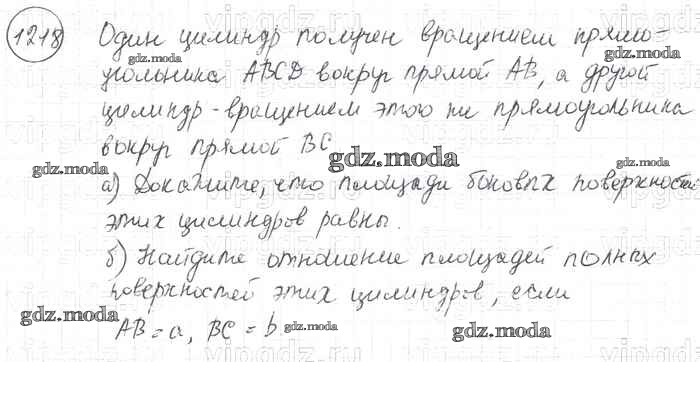 1218 Один цилиндр получен вращением прямо-
угольника ABCD вокруг прямой AB, а другой
цилиндр - вращением этого же прямоугольника
вокруг прямой BC
а) Докажите, что площади боковых поверхностей
этих цилиндров равны.
б) Найдите отношение площадей полных
поверхностей этих цилиндров, если
AB = a, BC = b
gdz.moda
gdz.moda
gdz.moda
gdz.moda
gdz.moda
gdz.moda
gdz.moda
gdz.moda
gdz.moda
vipgdz.ru